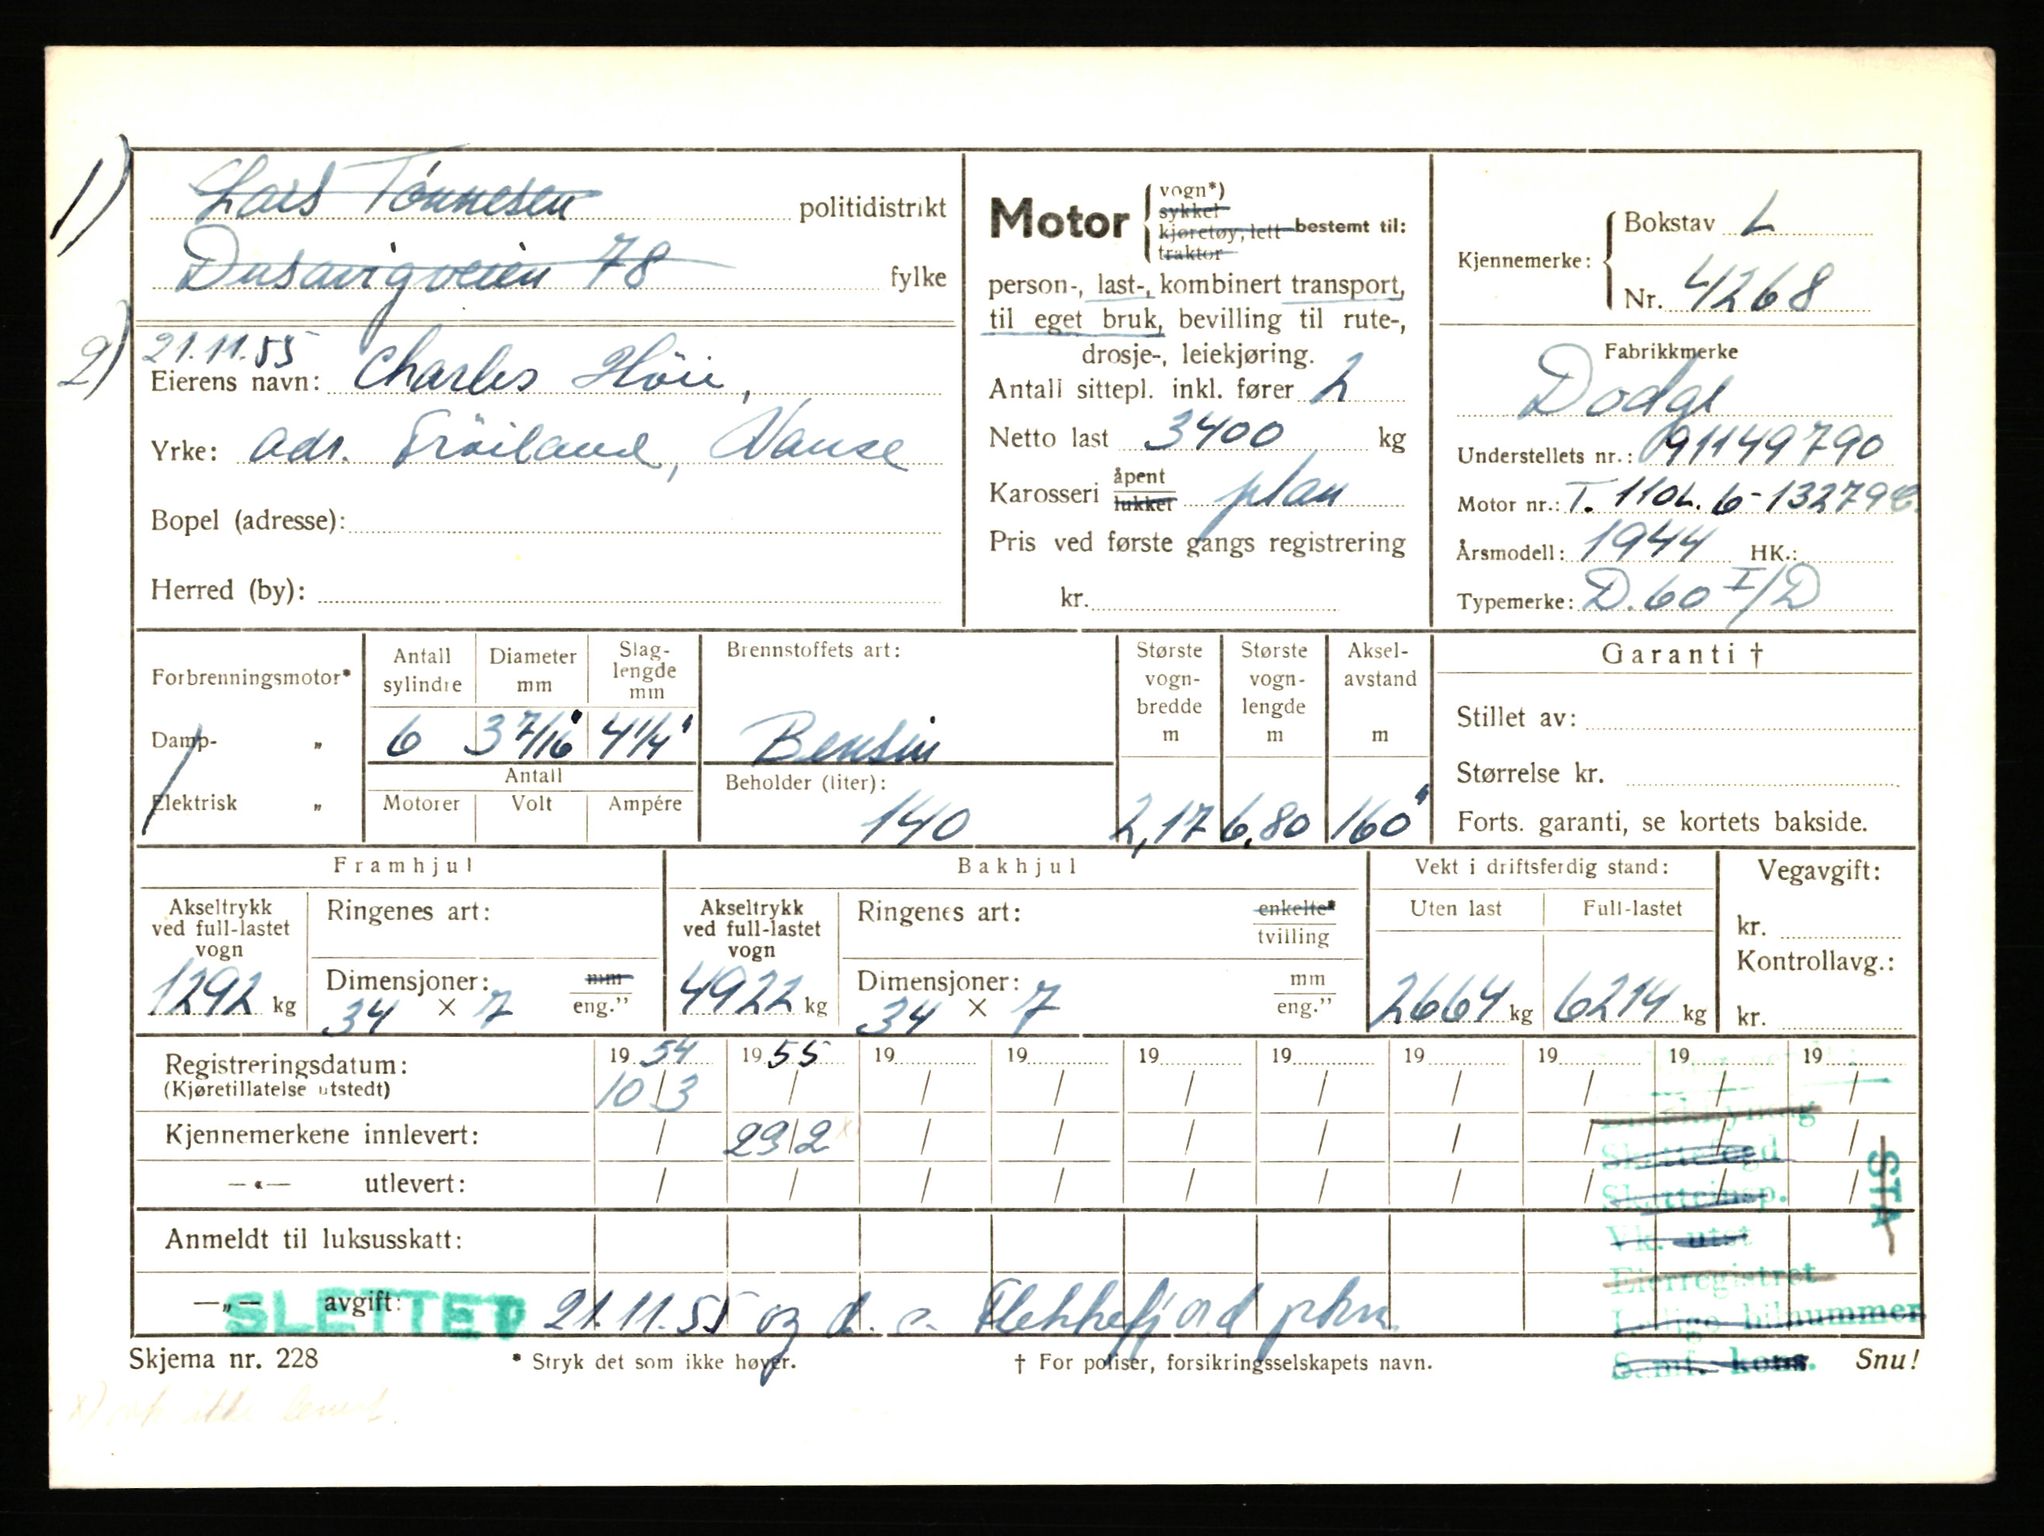 1) Lars Tønnesen politidistrikt
Dusavigveien 78 fylke
2) 21.11.55
Eierens navn: Charles Höie,
Yrke: adr. Tröiland, Vanse
Bopel (adresse):
Herred (by):
Motor vogn*)
sykkel
kjøretøy, lett
traktor
bestemt til:
person-, last-, kombinert transport,
til eget bruk, bevilling til rute-,
drosje-, leiekjøring.
Antall sittepl. inkl. fører 2
Netto last 3400 kg
Karosseri åpent
lukket plan
Pris ved første gangs registrering
kr.
Kjennemerke: Bokstav L
Nr. 4268
Fabrikkmerke
Dodge
Understellets nr.: 91149790
Motor nr.: T. 110L. 6-13279C.
Årsmodell: 1944 HK.:
Typemerke: D. 60 I/D
Forbrenningsmotor*
Damp- „
Elektrisk „
Antall sylindre 6
Diameter mm 3 7/16"
Slag-lengde mm 4 1/4"
Antall
Motorer Volt Ampére
Brennstoffets art:
Bensin
Beholder (liter):
140
Største vogn-bredde m 2,17
Største vogn-lengde m 6,80
Aksel-avstand m 160"
Garanti †
Stillet av:
Størrelse kr.
Forts. garanti, se kortets bakside.
Framhjul
Akseltrykk ved full-lastet vogn 1292 kg
Ringenes art:
Dimensjoner: mm
34 × 7 eng.”
Bakhjul
Akseltrykk ved full-lastet vogn 4922 kg
Ringenes art: enkelte*
tvilling
Dimensjoner: mm
34 × 7 eng.”
Vekt i driftsferdig stand:
Uten last 2664 kg
Full-lastet 6214 kg
Vegavgift:
kr.
Kontrollavg.:
kr.
Registreringsdatum: 1954 1955 19 19 19 19 19 19 19 19
(Kjøretillatelse utstedt) 10/3 / / / / / / / / /
Kjennemerkene innlevert: / 23/2 x) / / / / / / / /
—«— utlevert: / / / / / / / / / /
Anmeldt til luksusskatt:
—„— avgift:
SLETTET 21.11.55 og d.
Flekkefjord pkm.
Skattefogd
Skatteinsp.
Vk. utst
Eierregistret
Ledige bilnummer
Samf. kons.
STA
Skjema nr. 228 * Stryk det som ikke høver. † For poliser, forsikringsselskapets navn. Snu!
x) ikke levert.